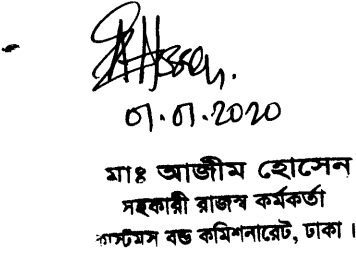 2020
মাঃ আজীম হোসেন
সহকারী রাজস্ব কর্মকর্তা
কাস্টমস বন্ড কমিশনারেট, ঢাকা ।